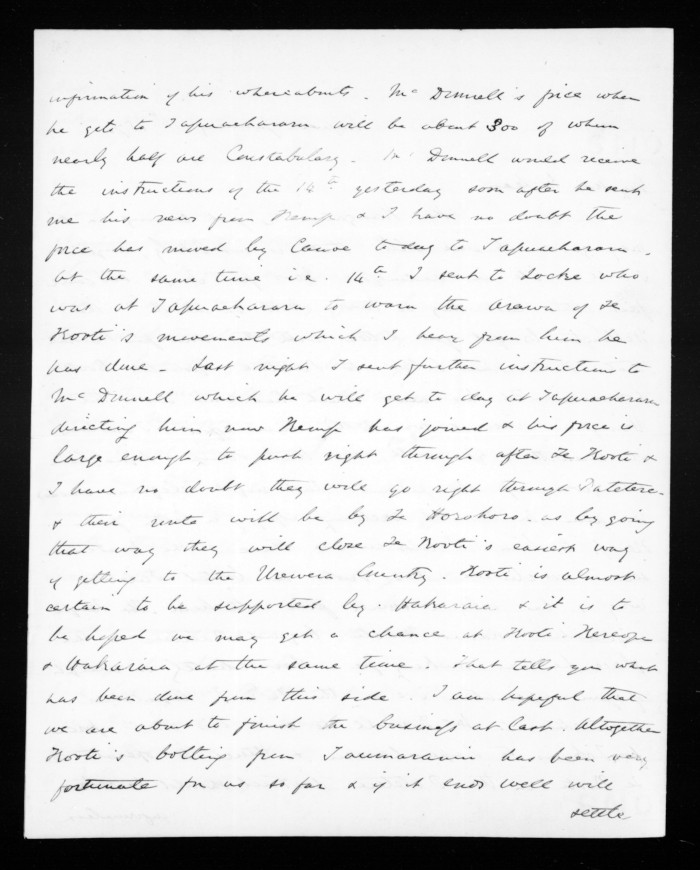 information of his whereabouts. Mc Donnell's force when
he gets to Tapuaeharuru will be about 300 of whom
nearly half are Constabulary. Mc Donnell would receive
the instructions of the 14th yesterday soon after he sent
me his news from Kemp & I have no doubt the
force has moved by Canoe to day to Tapuaeharuru.
at the same time i.e. 14th I sent to Locke who
was at Tapuaeharuru to warn the Arawa of Te
Kooti's movements which I hear from him he
has done - Last night I sent further instruction to
Mc Donnell which he will get to day at Tapuaeharuru
directing him now Kemp has joined & his force is
large enough to push right through after Te Kooti &
I have no doubt they will go right through Patetere -
& their route will be by Te Horohoro - as by going
that way they will close Te Kooti's easiest way
of getting to the Urewera Country. Kooti is almost
certain to be supported by Hakaraia & it is to
be hoped we may get a chance at Kooti Kereopa
& Hakaraia at the same time. That tells you what
has been done from this side. I am hopeful that
we are about to finish the business at last. Altogether
Kooti's bolting from Taumarunui has been very
fortunate for us so far & if it ends well will
settle